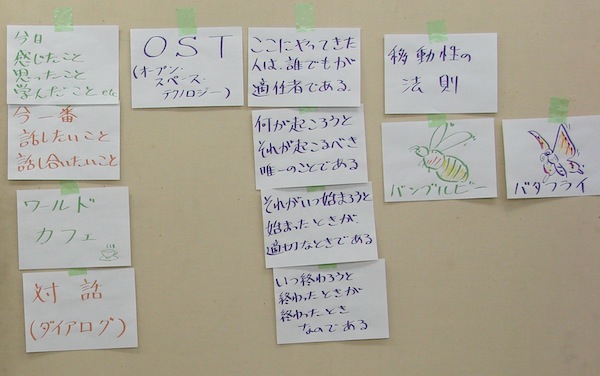 今日
感じたこと
思ったこと
学んだこと etc
今一番
話したいこと
話し合いたいこと
ワールド
カフェ
対話
(ダイアログ)
OST
(オープン・
スペース・
テクノロジー)
ここにやってきた
人は、誰でもが
適任者である。
何が起ころうと
それが起こるべき
唯一のことである
それがいつ始まろうと
始まったときが、
適切なときである
いつ終わろうと
終わったときが
終わったとき
なのである
移動性の
法則
バンブルビー
バタフライ